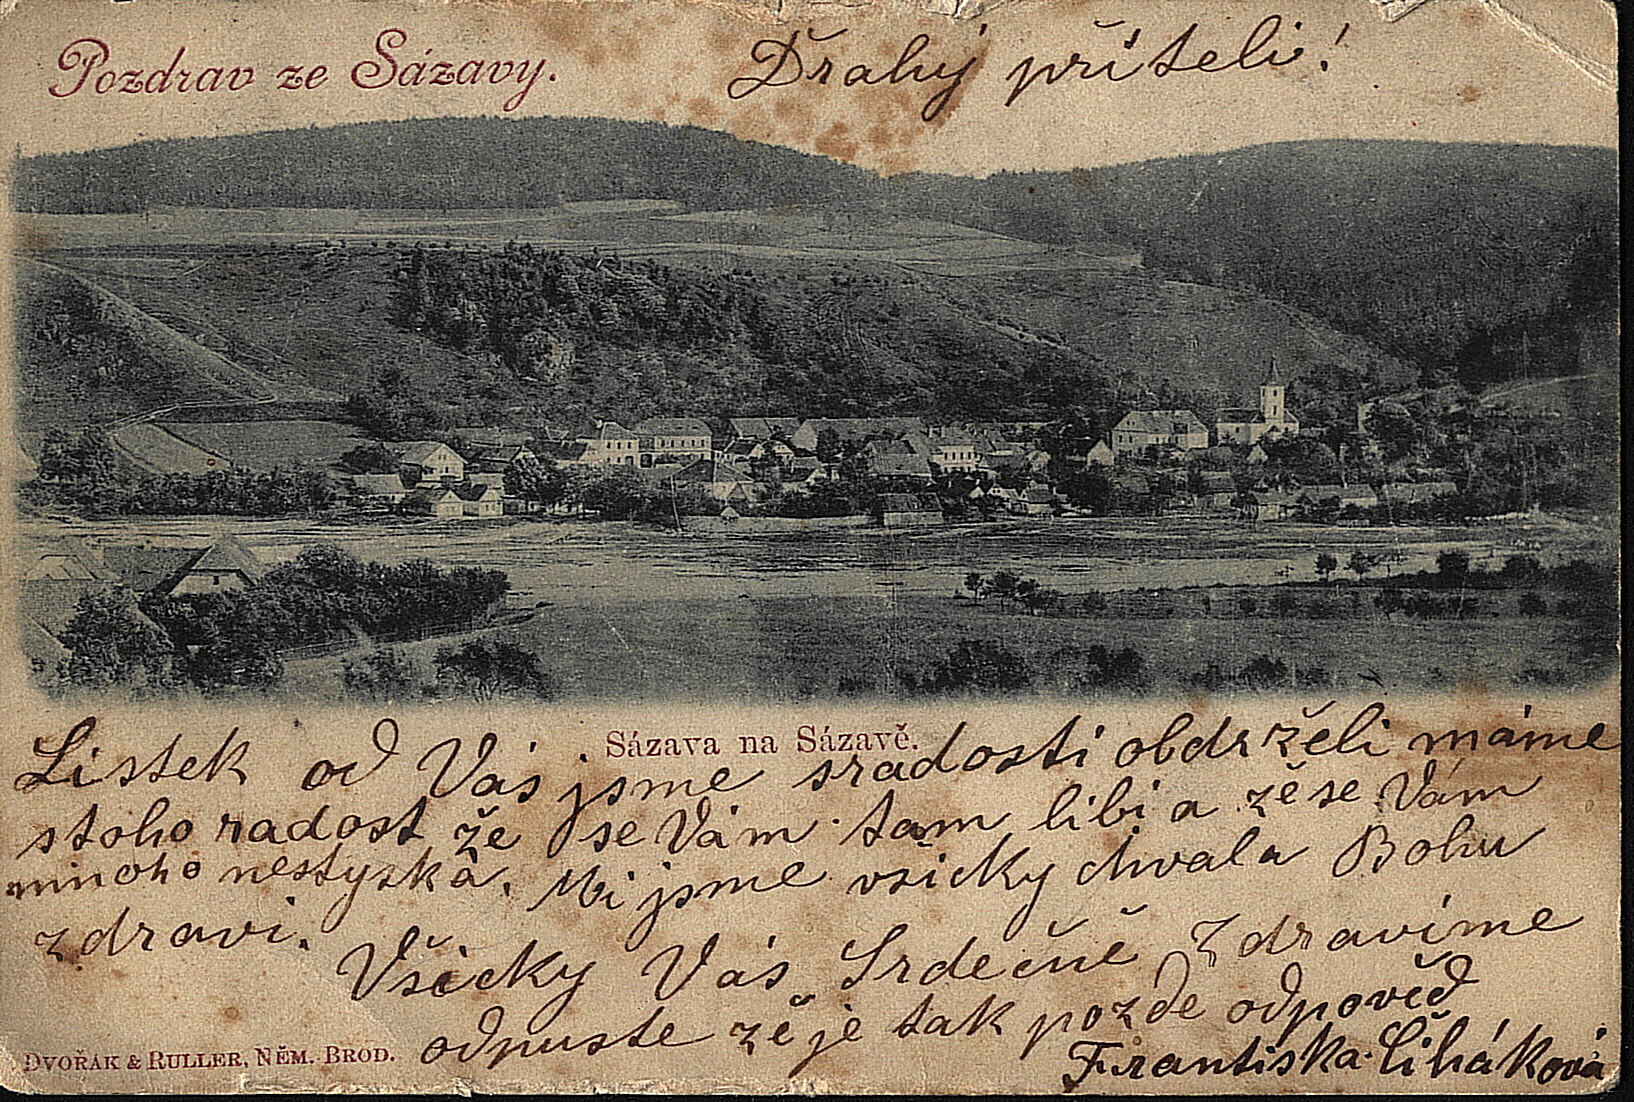 Pozdrav ze Sázavy.
Drahý příteli!
Sázava na Sázavě.
Listek od Vás jsme sradosti obdrželi máme
stoho radost že se Vám tam libi a žese Vám
mnoho nestyská. Mi jsme všicky chvala Bohu
zdravi.
Všicky Vás Srdečně Zdravíme
odpuste že je tak pozdě odpověď
Františka Čiháková
DVOŘÁK & RULLER, NĚM. BROD.